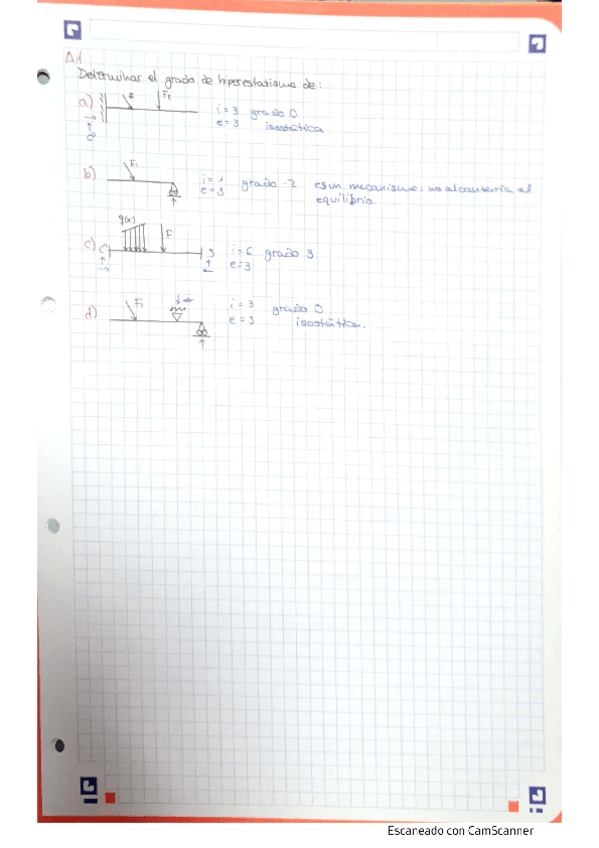 A1
Determinar el grado de hiperestatismo de:
a) F F₂ i=3 grado 0
e=3 isostática
b) F₁ i=1 grado -2 es un mecanismo: no alcanzaría el
e=3 equilibrio.
c) q(x) F i=6 grado 3
e=3
d) F₁ i=3 grado 0
e=3 isostática.
Escaneado con CamScanner